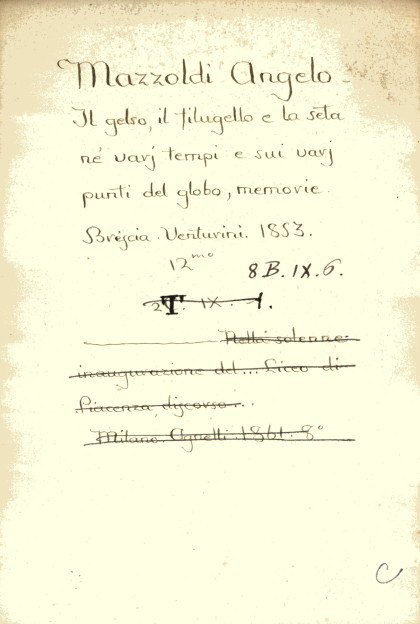 Mazzoldi Angelo
Il gelso, il filugello e la seta
né varj tempi e sui varj
punti del globo, memorie.
Brescia. Venturini. 1853.
12mo
8 B. IX. 6.
T. IX. 1.
Nella solenne
inaugurazione del... Liceo di
Piacenza, discorso...
Milano. Agnelli. 1861. 8°
C